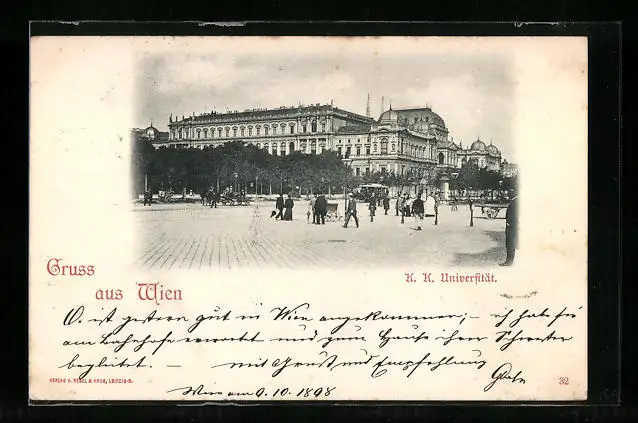 Gruss
aus Wien
K. K. Universität.
O. ist gestern gut in Wien angekommen; – ich hab sie
am Bahnhofe erwartet und zum Hause ihrer Schwester
begleitet. – mit Gruß und Empfehlung
Wien am 9.10.1898
VERLAG V. REGEL & KRUG, LEIPZIG-R.
32